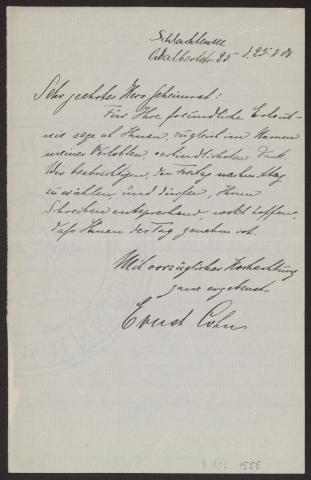 Schlachtensee
Adalbertstr. 25 d. 25. 8. 08.
Sehr geehrter Herr Geheimrat:
Für Ihre freundliche Erlaub-
nis sage ich Ihnen, zugleich im Namen
meiner Verlobten, verbindlichsten Dank.
Wir beabsichtigen, den Freitag nachmittag
zu wählen, und dürfen, Ihrem
Schreiben entsprechend, wohl hoffen,
daß Ihnen der Tag genehm ist.
Mit vorzüglicher Hochachtung
ganz ergebenst
Ernst Cohn
1556